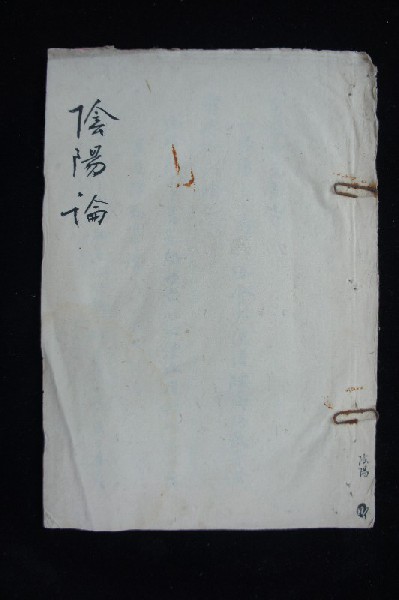 陰陽論
陰陽